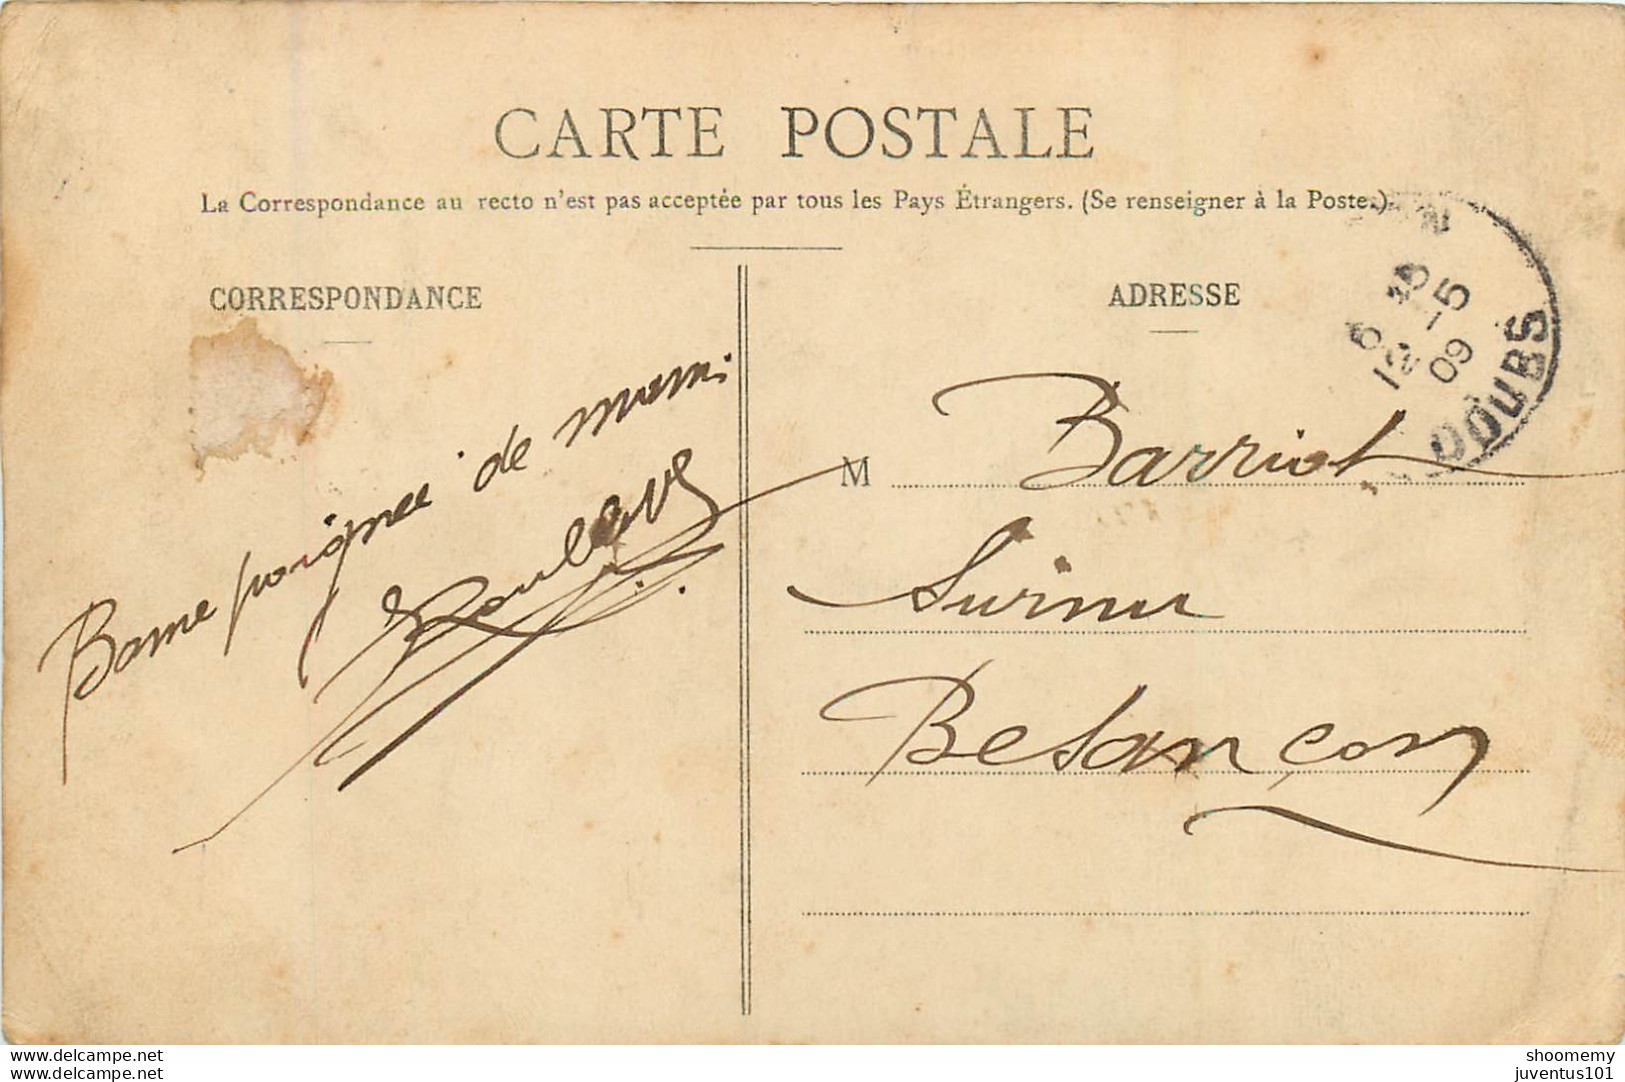 CARTE POSTALE
La Correspondance au recto n'est pas acceptée par tous les Pays Étrangers. (Se renseigner à la Poste.)
CORRESPONDANCE
Bonne poignée de main
ADRESSE
M Barriot
Besançon
6
12 -5
09
DOUBS
www.delcampe.net
www.delcampe.net
shoomemy
juventus101